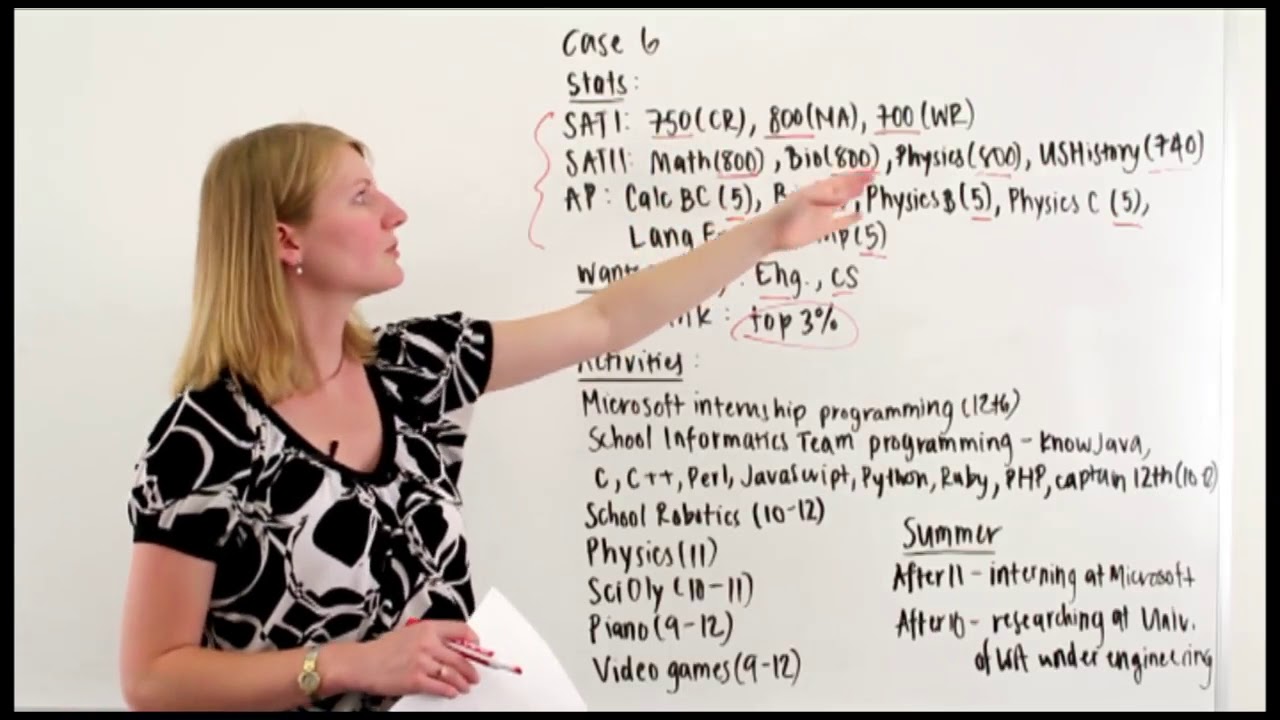 Case 6
Stats:
SAT I: 750(CR), 800(MA), 700(WR)
SAT II: Math(800), Bio(800), Physics(800), US History(740)
AP: Calc BC (5), Physics B (5), Physics C (5),
Lang (5)
Eng., CS
: top 3%
Activities:
Microsoft internship programming (12+6)
School Informatics Team programming - know Java,
C, C++, Perl, JavaScript, Python, Ruby, PHP, captain 12th
School Robotics (10-12)
Physics (11)
SciOly (10-11)
Piano (9-12)
Video games (9-12)
Summer
After 11 - interning at Microsoft
After 10 - researching at Univ.
of WA under engineering